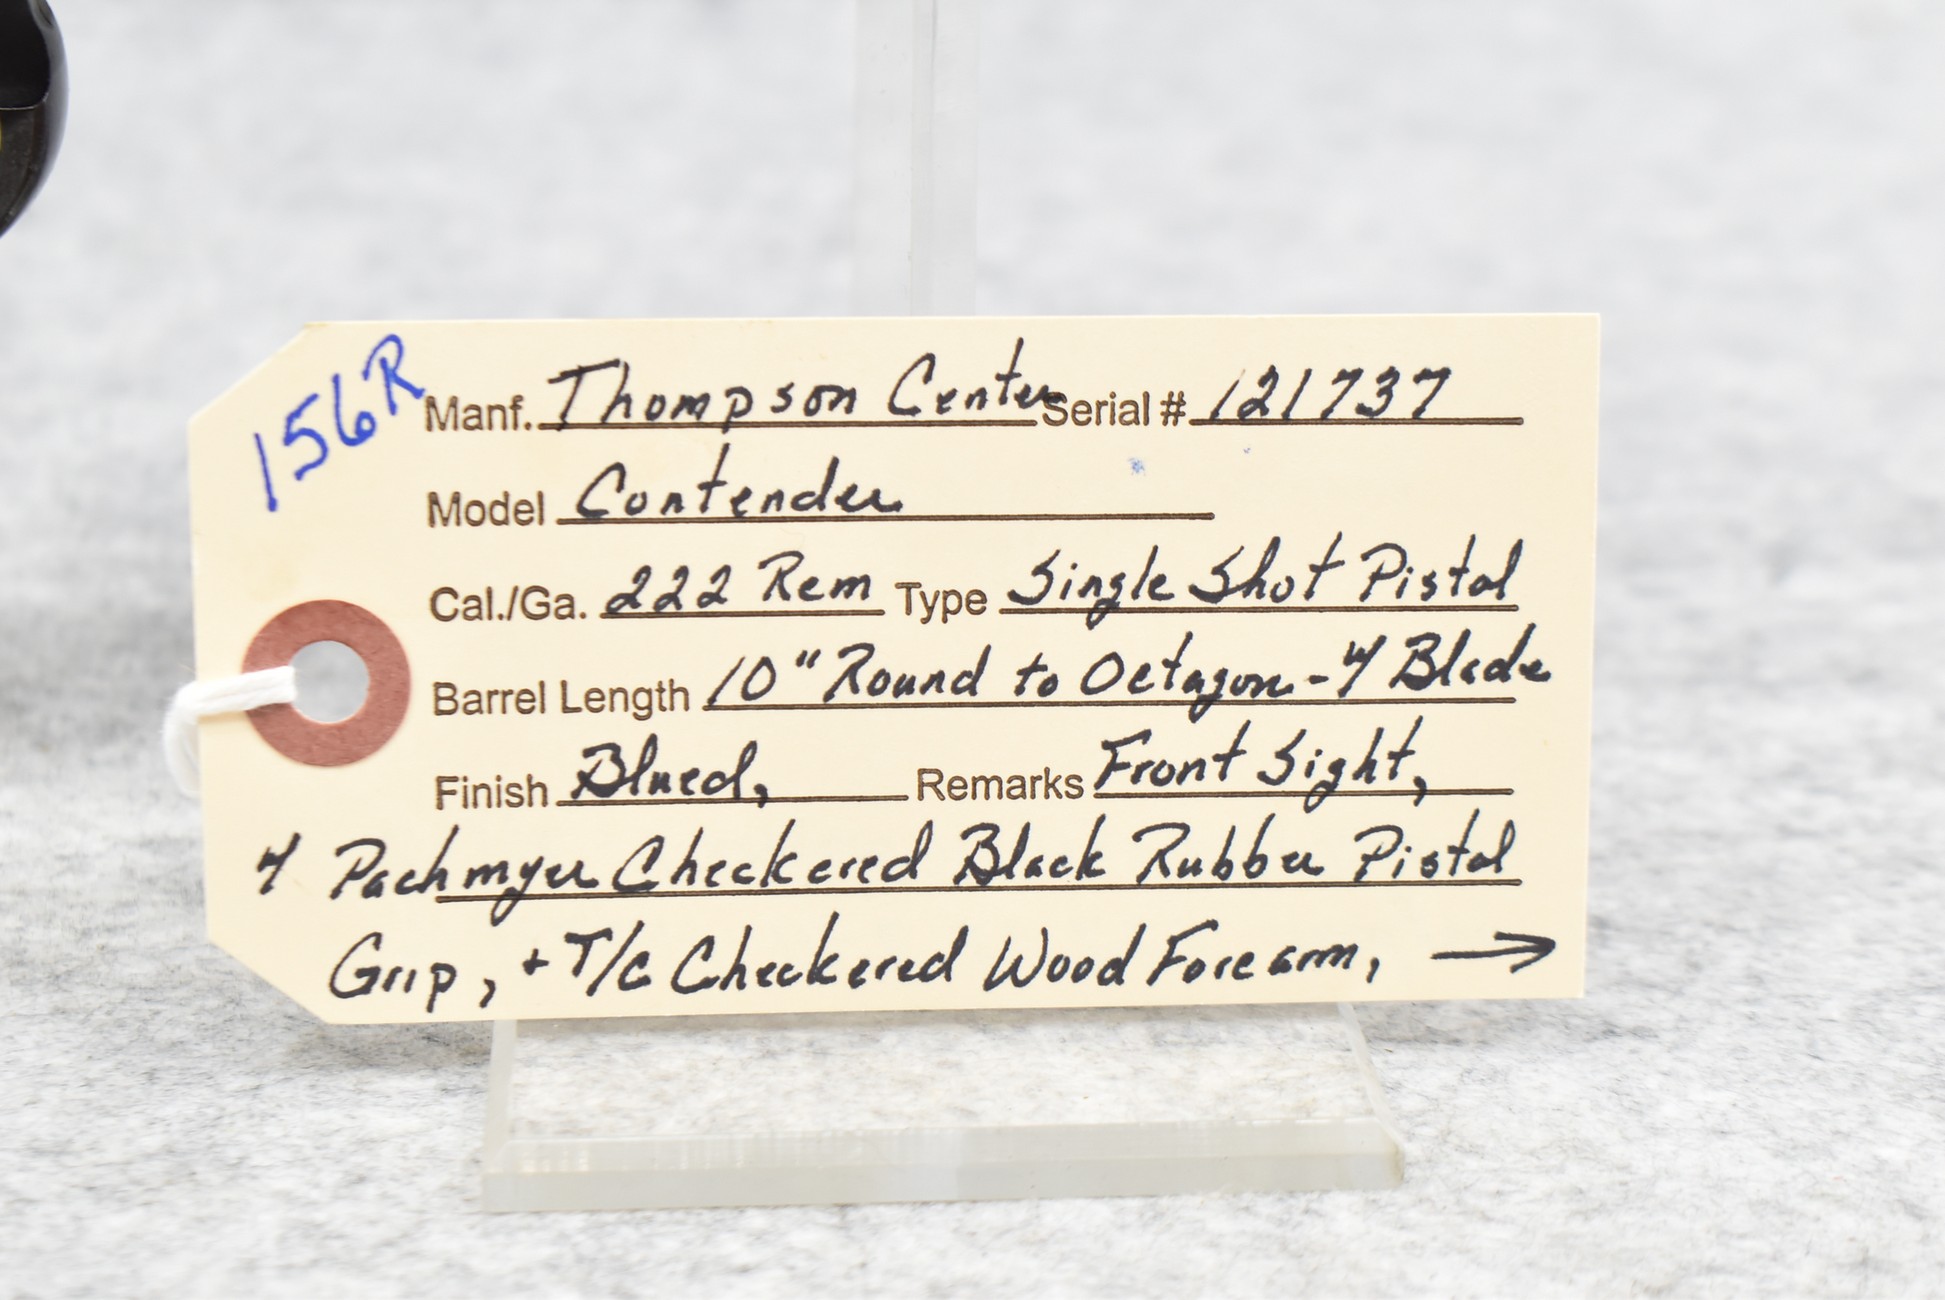 156R
Manf. Thompson Center Serial # 121737
Model Contender
Cal./Ga. 222 Rem Type Single Shot Pistol
Barrel Length 10" Round to Octagon - 4 Blade
Finish Blued, Remarks Front Sight,
4 Pachmyer Checkered Black Rubber Pistol
Grip, + T/C Checkered Wood Forearm, →